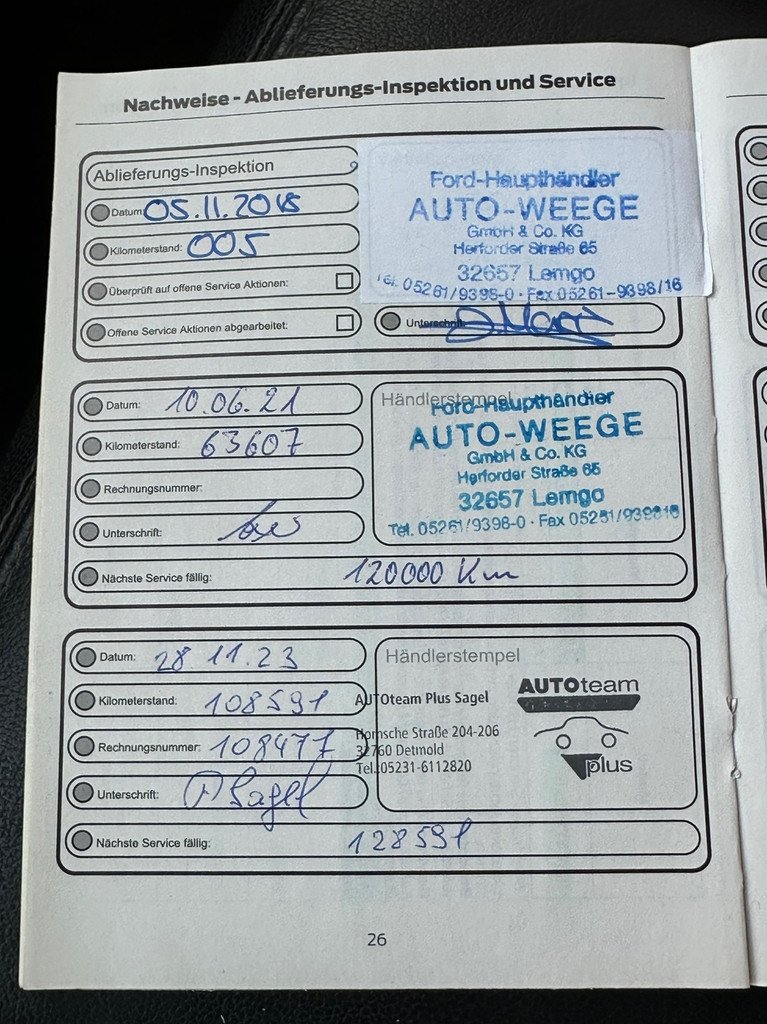 Nachweise - Ablieferungs-Inspektion und Service
Ablieferungs-Inspektion
Datum: 05.11.2018
Kilometerstand: 005
Überprüft auf offene Service Aktionen:
Offene Service Aktionen abgearbeitet:
Ford-Haupthändler
AUTO-WEEGE
GmbH & Co. KG
Herforder Straße 65
32657 Lemgo
Tel. 05261/9398-0 · Fax 05261-9398/16
Unterschrift:
Datum: 10.06.21
Kilometerstand: 63607
Rechnungsnummer:
Unterschrift:
Händlerstempel
Ford-Haupthändler
AUTO-WEEGE
GmbH & Co. KG
Herforder Straße 65
32657 Lemgo
Tel. 05261/9398-0 · Fax 05261/939816
Nächste Service fällig: 120000 Km
Datum: 28 11.23
Kilometerstand: 108591
Rechnungsnummer: 108477
Unterschrift: P Sagel
Händlerstempel
AUTOteam Plus Sagel
Hornsche Straße 204-206
32760 Detmold
Tel.:05231-6112820
AUTOteam
plus
Nächste Service fällig: 128591
26